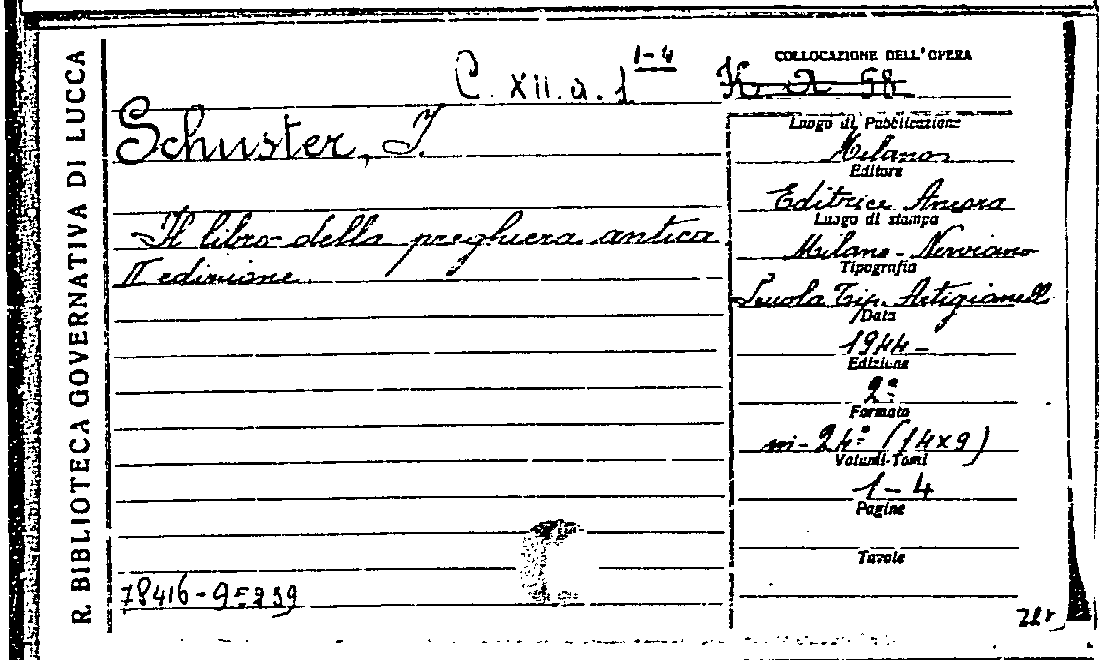 R. BIBLIOTECA GOVERNATIVA DI LUCCA
C. XII. a. 1 1-4
COLLOCAZIONE DELL'OPERA
Schuster, I.
Luogo di Pubblicazione
Milano
Editore
Il libro della preghiera antica
II edizione
Editrice Ancora
Luogo di stampa
Milano - Nerviano
Tipografia
Scuola Tip. Artigianelli
Data
1944-
Edizione
2ª
Formato
in-24° (14x9)
Volumi-Tomi
1-4
Pagine
Tavole